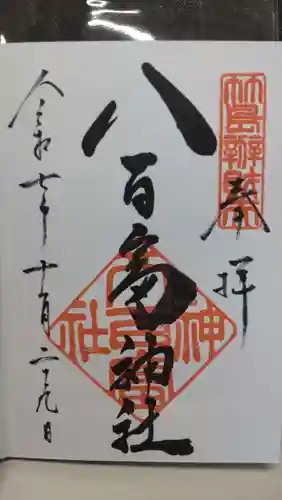 竹島辨財天
奉拝
八百富神社
八百富神社
令和七年十月二十九日